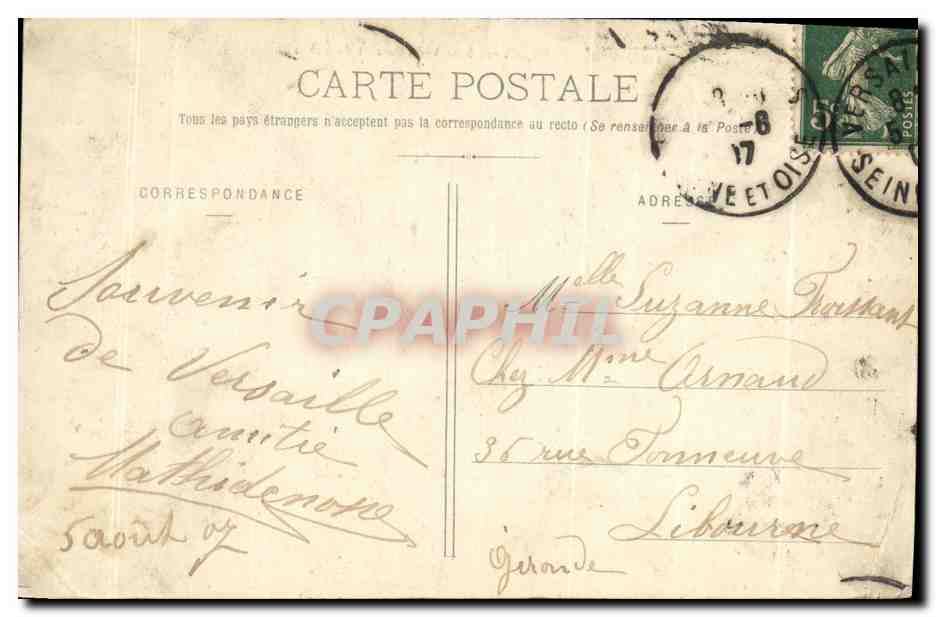 CARTE POSTALE
Tous les pays étrangers n'acceptent pas la correspondance au recto (Se renseigner à la Poste
CORRESPONDANCE
ADRESSE
-8
17
VE ET OISE
VERSAI
SEIN
5
POSTES
Souvenir
de Versaille
amitié
5 août 07
Melle Suzanne
Chez Mme Arnaud
36 rue Fonneuve
Libourne
Gironde
CPAPHIL